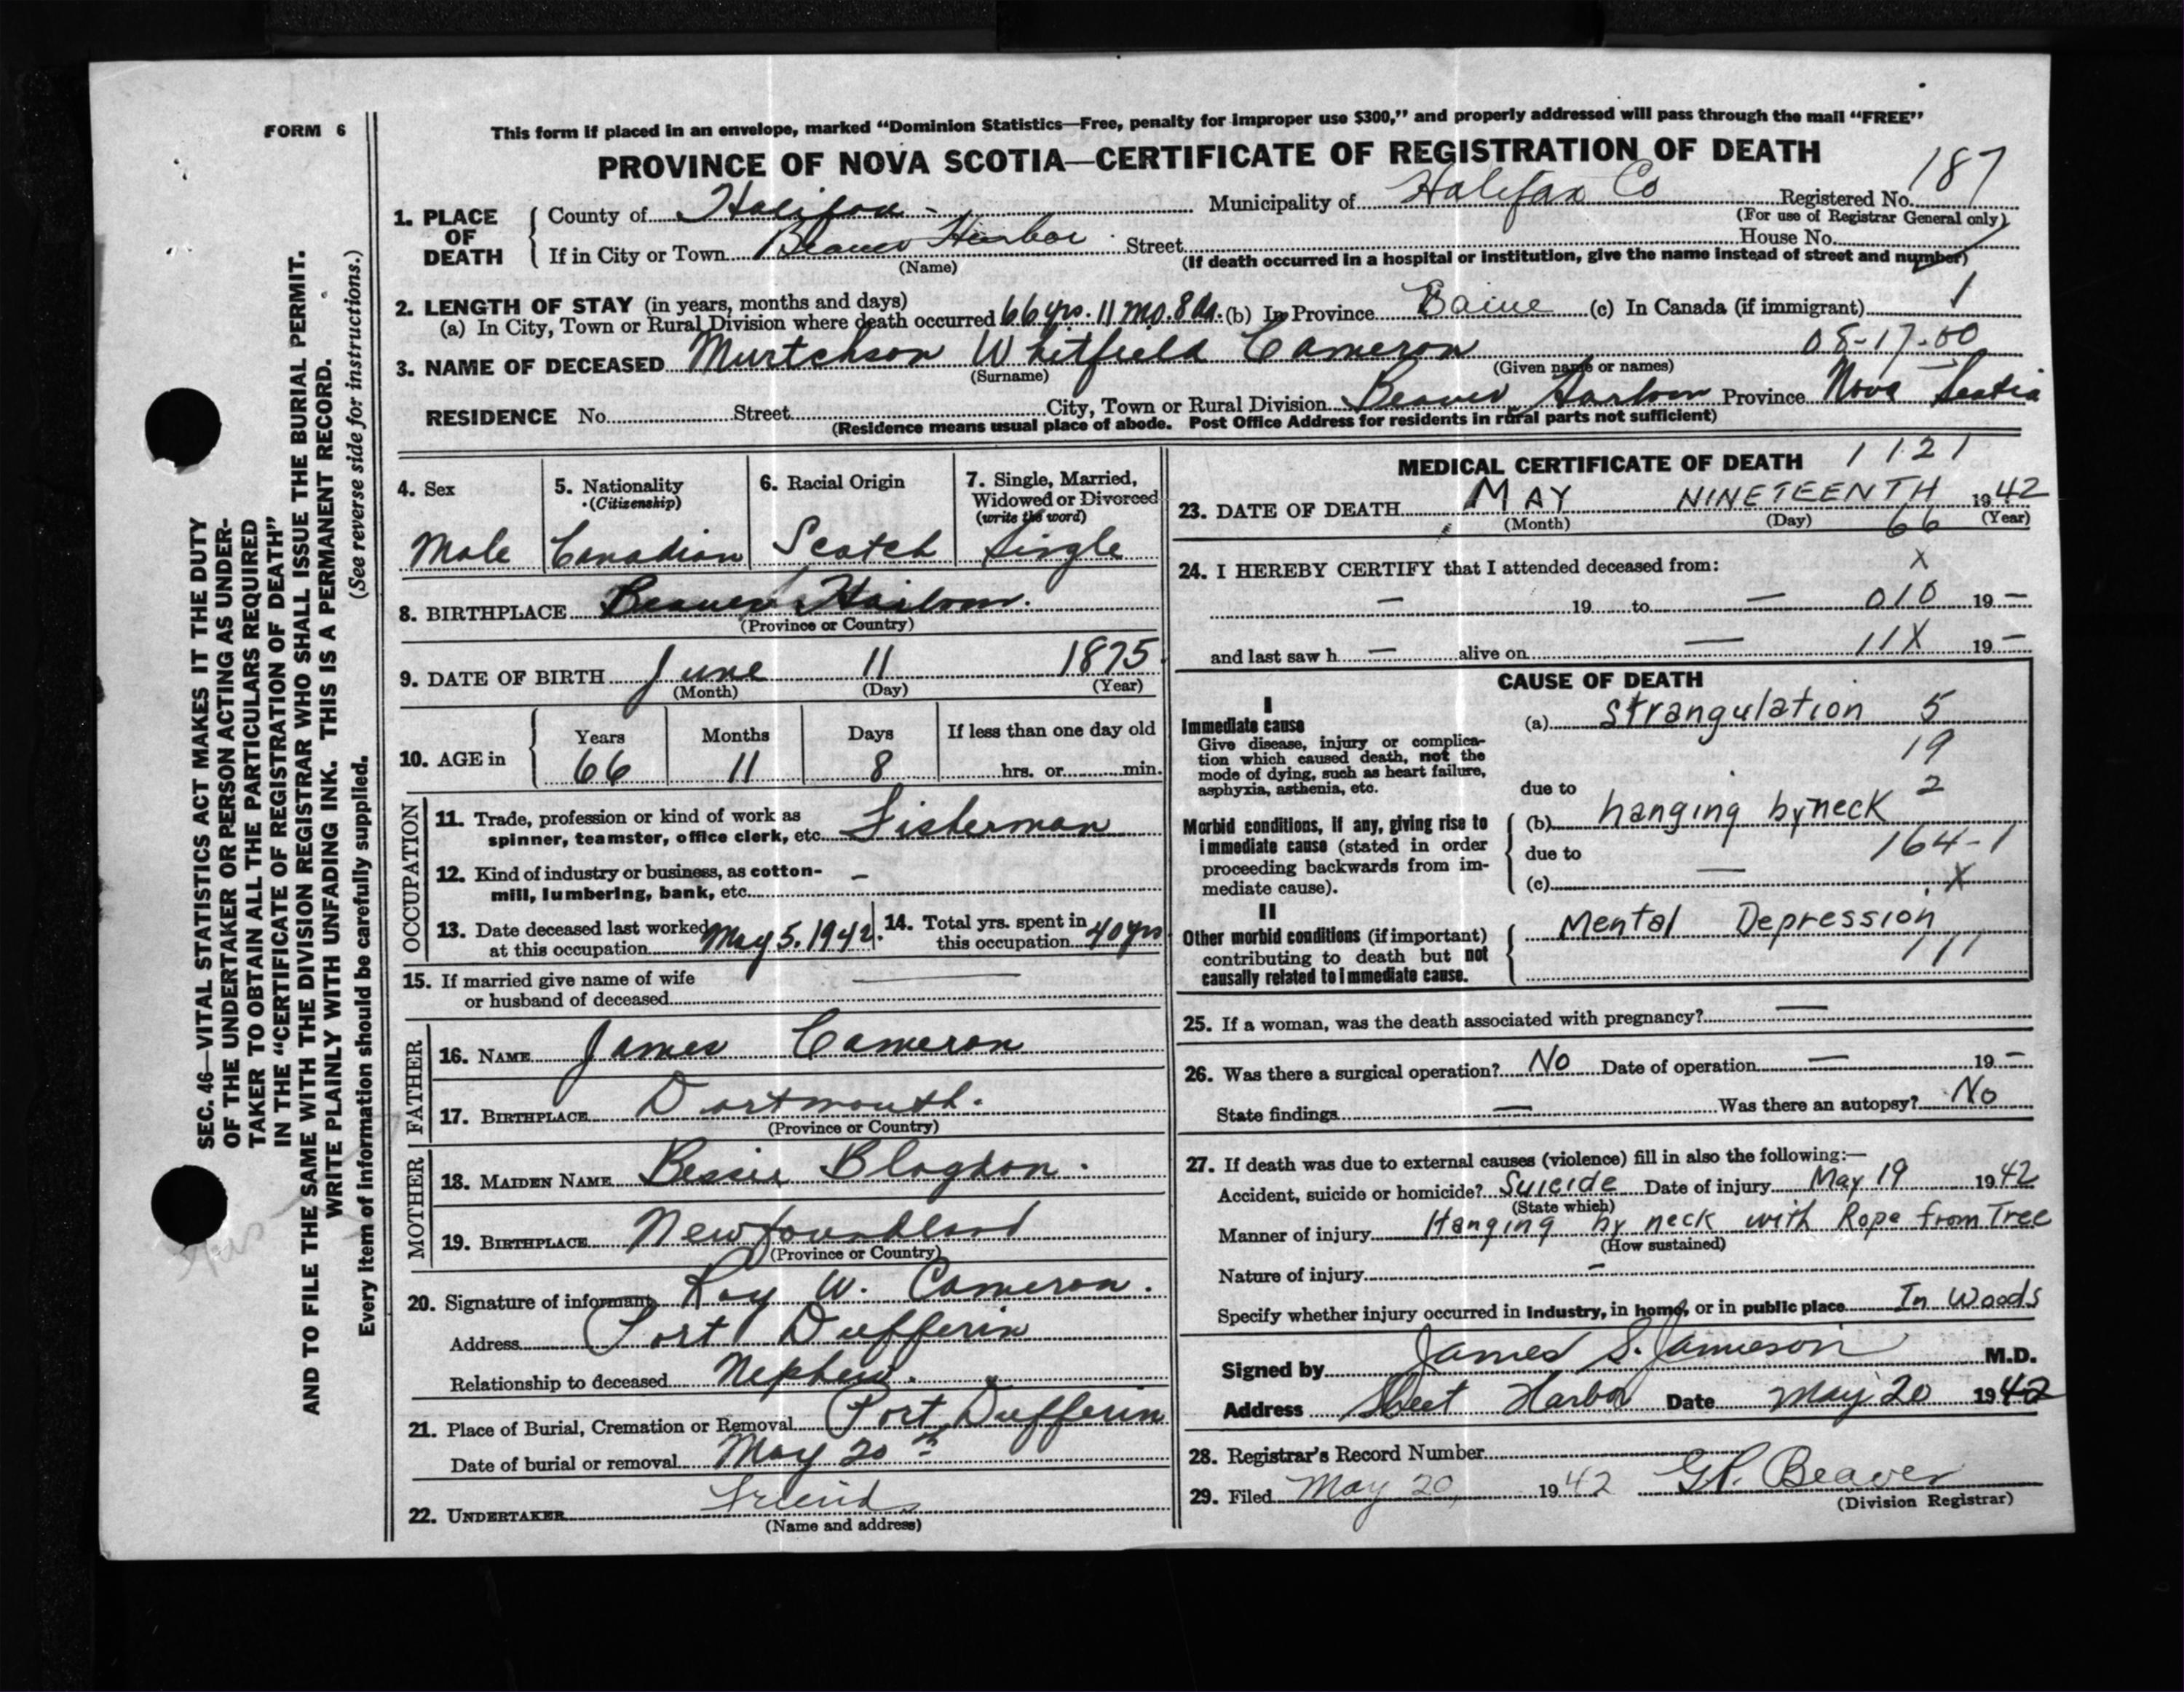 FORM 6
This form if placed in an envelope, marked “Dominion Statistics—Free, penalty for improper use $300,” and properly addressed will pass through the mail “FREE”
PROVINCE OF NOVA SCOTIA—CERTIFICATE OF REGISTRATION OF DEATH
187
1. PLACE OF DEATH
County of Halifax - Municipality of Halifax Co Registered No.
(For use of Registrar General only)
If in City or Town Beaver Harbor Street House No.
(Name) (If death occurred in a hospital or institution, give the name instead of street and number)
2. LENGTH OF STAY (in years, months and days)
(a) In City, Town or Rural Division where death occurred 66 yrs. 11 mo. 8 ds. (b) In Province (c) In Canada (if immigrant) 1
08-17-00
3. NAME OF DECEASED Murtchson Whitfield Cameron
(Surname) (Given name or names)
RESIDENCE No. Street City, Town or Rural Division Beaver Harbour Province Nova Scotia
(Residence means usual place of abode. Post Office Address for residents in rural parts not sufficient)
4. Sex
Male
5. Nationality
(Citizenship)
Canadian
6. Racial Origin
Scotch
7. Single, Married,
Widowed or Divorced
(write the word)
Single
8. BIRTHPLACE Beaver Harbour.
(Province or Country)
9. DATE OF BIRTH June 11 1875
(Month) (Day) (Year)
10. AGE in
Years Months Days If less than one day old
66 11 8 hrs. or min.
OCCUPATION
11. Trade, profession or kind of work as
spinner, teamster, office clerk, etc. Fisherman
12. Kind of industry or business, as cotton-
mill, lumbering, bank, etc. –
13. Date deceased last worked
at this occupation May 5. 1942.
14. Total yrs. spent in
this occupation 40 yrs
15. If married give name of wife
or husband of deceased —
FATHER
16. NAME James Cameron
17. BIRTHPLACE Dartmouth.
(Province or Country)
MOTHER
18. MAIDEN NAME Bessie Blagdon.
19. BIRTHPLACE Newfoundland
(Province or Country)
20. Signature of informant Roy W. Cameron.
Address Port Dufferin
Relationship to deceased Nephew.
21. Place of Burial, Cremation or Removal Port Dufferin
Date of burial or removal May 20th
22. UNDERTAKER Friend
(Name and address)
MEDICAL CERTIFICATE OF DEATH 1121
23. DATE OF DEATH MAY NINETEENTH 1942
(Month) (Day) (Year)
66
24. I HEREBY CERTIFY that I attended deceased from: X
– 19 to — 010 19 –
and last saw h – alive on — 11X 19 –
CAUSE OF DEATH
I
Immediate cause
Give disease, injury or complica-
tion which caused death, not the
mode of dying, such as heart failure,
asphyxia, asthenia, etc.
(a) Strangulation 5
19
due to 2
Morbid conditions, if any, giving rise to
immediate cause (stated in order
proceeding backwards from im-
mediate cause).
(b) hanging by neck
due to 164-1
(c) — X
II
Other morbid conditions (if important)
contributing to death but not
causally related to immediate cause.
Mental Depression
111
25. If a woman, was the death associated with pregnancy? —
26. Was there a surgical operation? No Date of operation — 19 –
State findings — Was there an autopsy? No
27. If death was due to external causes (violence) fill in also the following:—
Accident, suicide or homicide? Suicide Date of injury May 19 1942
(State which)
Manner of injury Hanging by neck with Rope from Tree
(How sustained)
Nature of injury –
Specify whether injury occurred in Industry, in home, or in public place In Woods
Signed by James S. Jamieson M.D.
Address Sheet Harbor Date May 20 1942
28. Registrar's Record Number
29. Filed May 20, 1942 G.P. Beaver
(Division Registrar)
SEC. 46—VITAL STATISTICS ACT MAKES IT THE DUTY
OF THE UNDERTAKER OR PERSON ACTING AS UNDER-
TAKER TO OBTAIN ALL THE PARTICULARS REQUIRED
IN THE “CERTIFICATE OF REGISTRATION OF DEATH”
AND TO FILE THE SAME WITH THE DIVISION REGISTRAR WHO SHALL ISSUE THE BURIAL PERMIT.
WRITE PLAINLY WITH UNFADING INK. THIS IS A PERMANENT RECORD.
Every item of information should be carefully supplied. (See reverse side for instructions.)